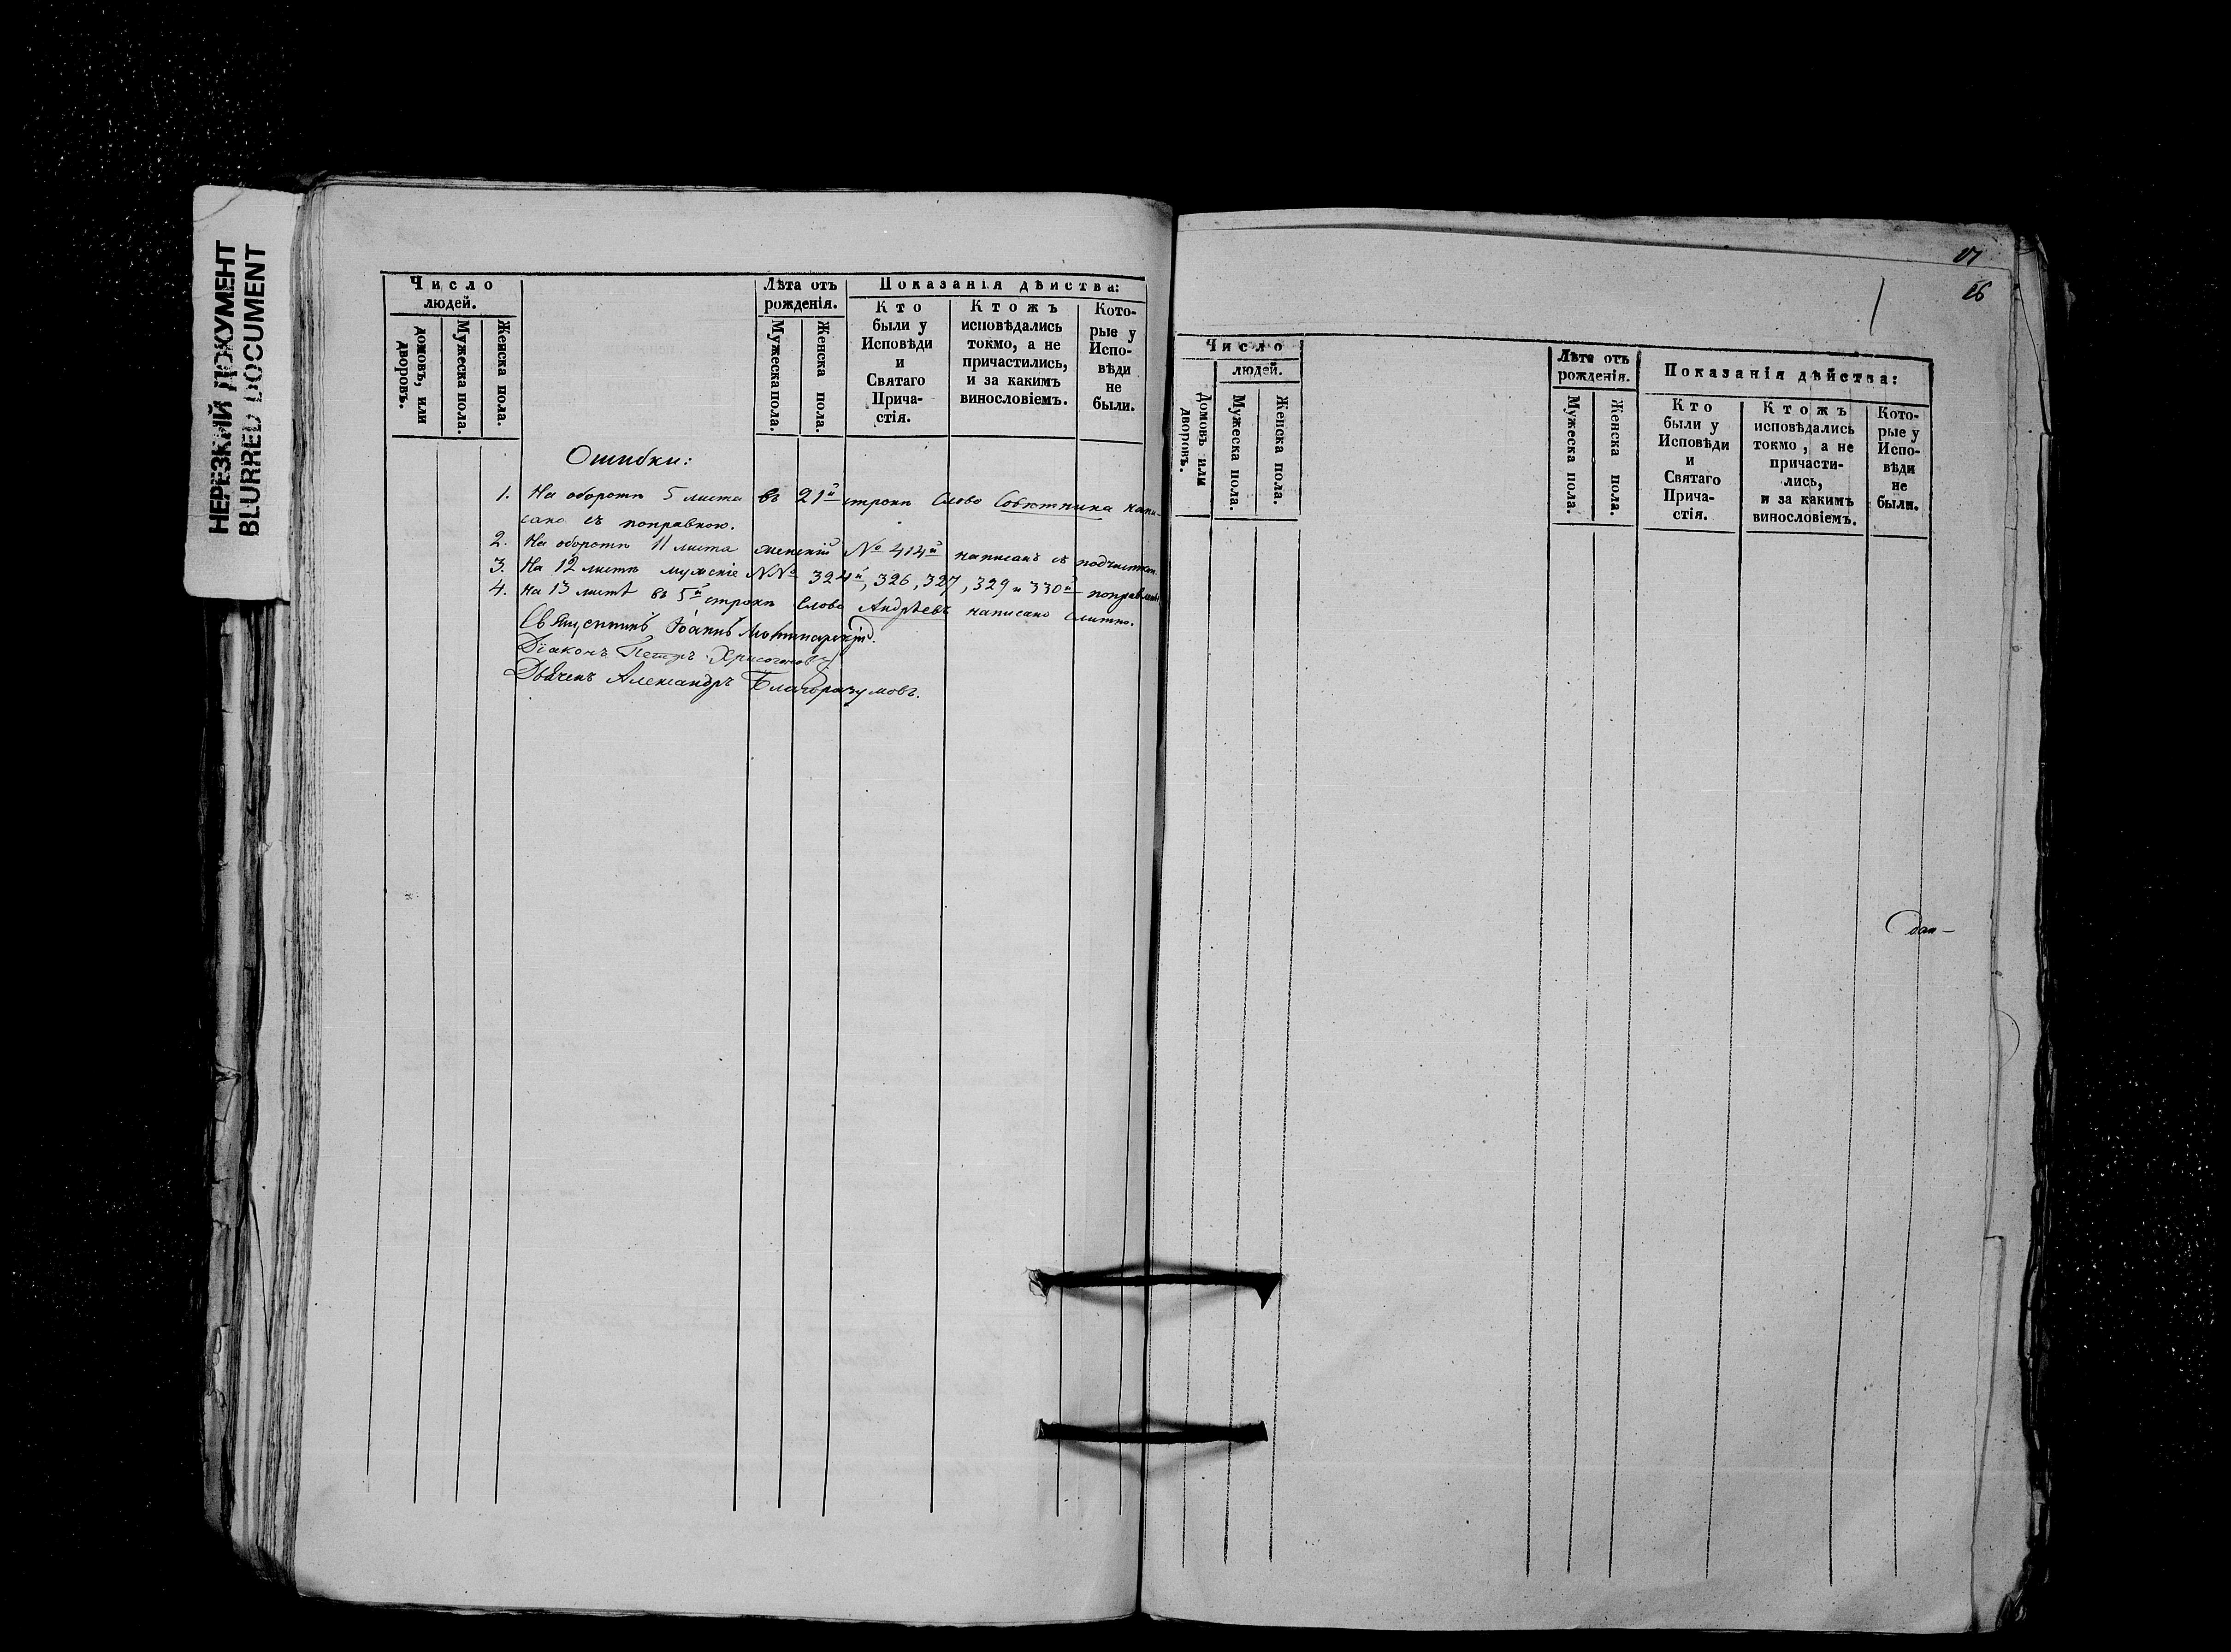 НЕРЕЗКИЙ ДОКУМЕНТ
BLURRED DOCUMENT
Число
людей.
домовъ, или дворовъ.
Мужеска пола.
Женска пола.
Лѣта отъ
рожденія.
Мужеска пола.
Женска пола.
Показанія дѣйства:
Кто
были у
Исповѣди
и
Святаго
Прича-
стія.
Ктожъ
исповѣдались
токмо, а не
причастились,
и за какимъ
винословіемъ.
Кото-
рые у
Испо-
вѣди
не
были.
Ошибки:
1. На оборотѣ 5 листа въ 21й строкѣ слово Совѣтника напи-
сано съ поправкою.
2. На оборотѣ 11 листа женскій № 414й написанъ съ подчисткою.
3. На 12 листѣ мужскіе №№ 324й, 326, 327, 329 и 330й поправлены
4. На 13 листѣ въ 5й строкѣ слово Андреевъ написано слитно.
Священникъ Іоаннъ
Діаконъ Петръ Хрисогоновъ
Дьячекъ Александръ Благоразумовъ.
26
Число
людей.
Домовъ или дворовъ.
Мужеска пола.
Женска пола.
Лѣта отъ
рожденія.
Мужеска пола.
Женска пола.
Показанія дѣйства:
Кто
были у
Исповѣди
и
Святаго
Прича-
стія.
Ктожъ
исповѣдались
токмо, а не
причасти-
лись,
и за какимъ
винословіемъ.
Кото-
рые у
Испо-
вѣди
не
были.